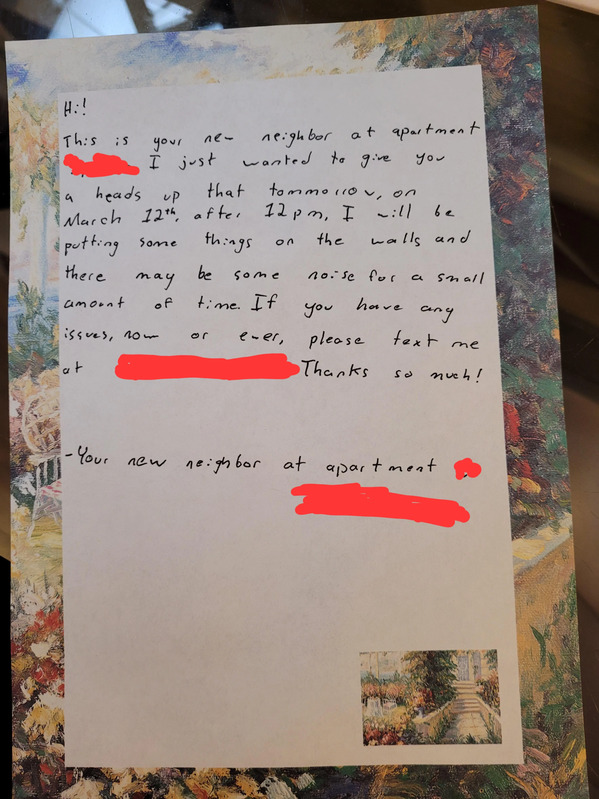 Hi!
This is your new neighbor at apartment
I just wanted to give you
a heads up that tommorrow, on
March 12th, after 12pm, I will be
putting some things on the walls and
there may be some noise for a small
amount of time. If you have any
issues, now or ever, please text me
at Thanks so much!
-Your new neighbor at apartment